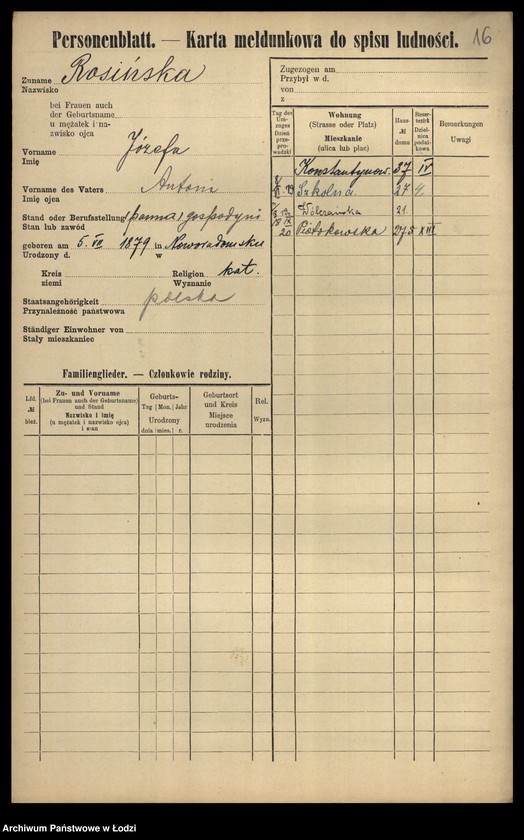 Personenblatt. — Karta meldunkowa do spisu ludności. 16
Zuname Rosińska
Nazwisko
bei Frauen auch
der Geburtsname
u mężatek i na-
zwisko ojca
Vorname Józefa
Imię
Vorname des Vaters Antoni
Imię ojca
Stand oder Berufsstellung (panna) gospodyni
Stan lub zawód
geboren am 5. VII 1879 in Noworadomsku
Urodzony d. w
Kreis Religion kat.
ziemi Wyznanie
Staatsangehörigkeit polska
Przynależność państwowa
Ständiger Einwohner von
Stały mieszkaniec
Zugezogen am
Przybył w d.
von
z
Tag des Um-zuges Dzień prze-prowadzki
Wohnung
(Strasse oder Platz)
Mieszkanie
(ulica lub plac)
Haus-
№
domu
Bemerkungen
Uwagi
Konstantynow. 37 IV
Szkolna 27
21
20 Piotrkowska 275 XIII
Familienglieder. — Członkowie rodziny.
Lfd.
№
bież.
Zu- und Vorname
(bei Frauen auch der Geburtsname)
und Stand
Nazwisko i imię
(u mężatek i nazwisko ojca)
i stan
Geburts-
Tag Mon. Jahr
Urodzony
dnia mies. r.
Geburtsort
und Kreis
Miejsce
urodzenia
Rel.
Wyzn.
Archiwum Państwowe w Łodzi